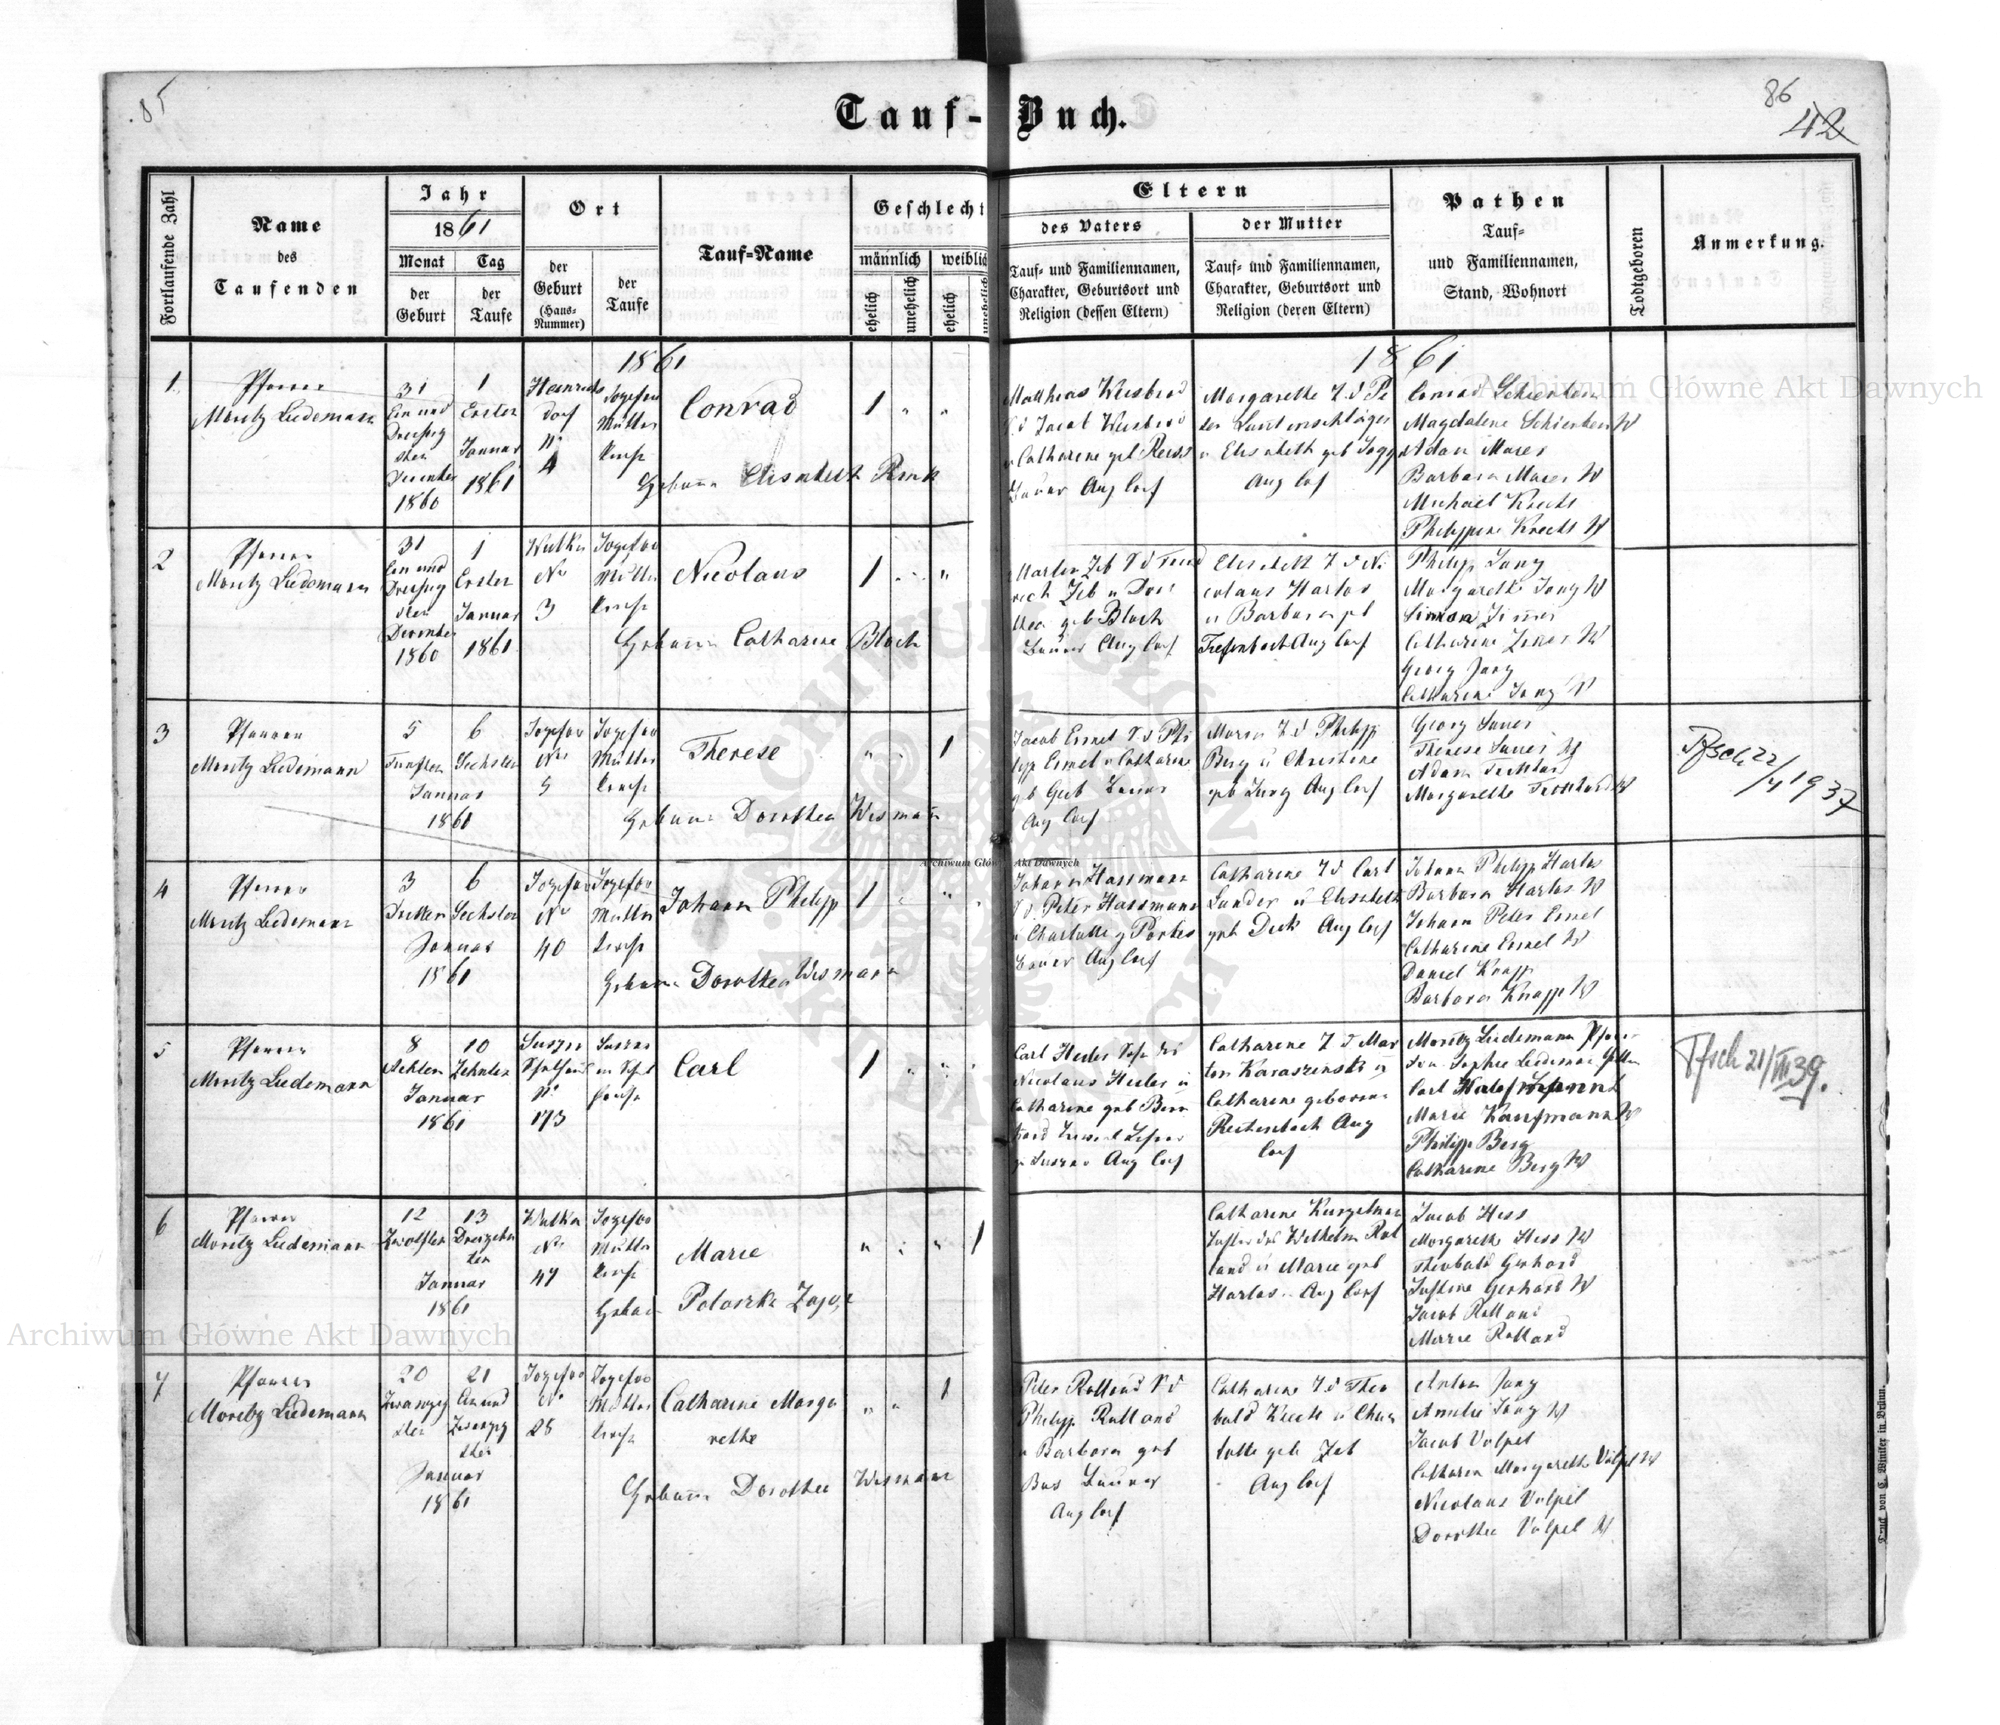 85
86
42
Tauf-Buch.
Fortlaufende Zahl
Name
des
Taufenden
Jahr
1861
Monat
der
Geburt
Tag
der
Taufe
Ort
der
Geburt
(Haus-
Nummer)
der
Taufe
Tauf-Name
Geschlecht
männlich
ehelich
unehelich
weiblich
ehelich
unehelich
Eltern
des Vaters
Tauf- und Familiennamen,
Charakter, Geburtsort und
Religion (dessen Eltern)
der Mutter
Tauf- und Familiennamen,
Charakter, Geburtsort und
Religion (deren Eltern)
Pathen
Tauf-
und Familiennamen,
Stand, Wohnort
Todtgeboren
Anmerkung.
1861
1861
1
Pfarrer
Moritz Liedemann
31
Ein und
Dreißig
sten
December
1860
1
Erster
Januar
1861
Heinrichs
dorf
N.
4
Jozefow
Mutter
kirche
Conrad
1
Hebamme Elisabeth Renk
Matthias Weisbrod
S. d Jacob Weisbrod
u Catharine geb Reiss
Bauer Aug Conf
Margarethe T d Pe
ter Lautenschläger
u Elisabeth geb
Aug Conf
Conrad Schienbein
Magdalene Schienbein W
Adam Maser
Barbara Maser W
Michael Knecht
Philippine Knecht W
2
Pfarrer
Moritz Liedemann
31
Ein und
Dreißig
sten
December
1860
1
Erster
Januar
1861
Wulka
No
3
Jozefow
Mutter
kirche
Nicolaus
1
Hebamme Catharine Bloch
Martin Zeb S d Fried
rich Zeb u Doro
thea geb Bloch
Bauer Aug Conf
Elisabeth T d Ni
colaus Harlos
u Barbara geb
Tiefenbach Aug Conf
Philipp Jung
Margarethe Jung W
Simon Zimer
Catharine Zimer W
Georg Jung
Catharine Jung W
3
Pfarrer
Moritz Liedemann
5
Fünften
6
Sechster
Januar
1861
Jozefow
No
5
Jozefow
Mutter
kirche
Therese
1
Hebamme Dorothea Wismann
Jacob Ermel S d Phi
lipp Ermel u Catharine
geb Geeb Bauer
Aug Conf
Maria T d Philipp
Berg u Christine
geb Jung Aug Conf
Georg Sauer
Therese Sauer W
Adam
Margarethe W
Pfsch 22/4 1937
4
Pfarrer
Moritz Liedemann
3
Dritten
6
Sechster
Januar
1861
Jozefow
No
40
Jozefow
Mutter
kirche
Johann Philipp
1
Hebamme Dorothea Wismann
Johann Hassmann
S d. Peter Hassmann
u Charlotte g
Bauer Aug Conf
Catharine T d Carl
Lander u Elisabeth
geb Dick Aug Conf
Johann Philipp Harlos
Barbara Harlos W
Johann Peter Ermel
Catharine Ermel W
Daniel Knapp
Barbara Knapp W
5
Pfarrer
Moritz Liedemann
8
Achten
10
Zehnten
Januar
1861
N.
173
Carl
1
Carl Hesler Sohn des
Nicolaus Hesler u
Catharine geb Bern
hard
Aug Conf
Catharine T d Mar
tin Karaszinski u
Catharine geborene
Reichenbach Aug
Conf
Moritz Liedemann Pfarr
Sophie Liedemann
Carl
Marie Kaufmann W
Philipp Berg
Catharine Berg W
Pfsch 21/III 39.
6
Pfarrer
Moritz Liedemann
12
Zwölften
13
Dreizehn
ten
Januar
1861
Wulka
No
47
Jozefow
Mutter
kirche
Marie
1
Catharine
Tochter des Wilhelm Rol
land u Marie geb
Harlos Aug Conf
Jacob Hess
Margarethe Hess W
Theobald Gerhard
Justine Gerhard W
Jacob Rolland
Marie Rolland
7
Pfarrer
Moritz Liedemann
20
Zwanzig
sten
21
Ein und
Zwanzig
sten
Januar
1861
Jozefow
No
28
Jozefow
Mutter
kirche
Catharine Marga
rethe
1
Hebamme Dorothea Wismann
Peter Rolland S d
Philipp Rolland
u Barbara geb
Bauer
Aug Conf
Catharine T d Theo
bald Knecht u Char
lotte geb Zeb
Aug Conf
Anton Jung
Amalie Jung W
Jacob Volpel
Catharin Margarethe Völpel W
Nicolaus Volpel
Dorothea Volpel W
Druck von C. Winiker in Brünn.
Archiwum Główne Akt Dawnych
Archiwum Główne Akt Dawnych
Archiwum Główne Akt Dawnych